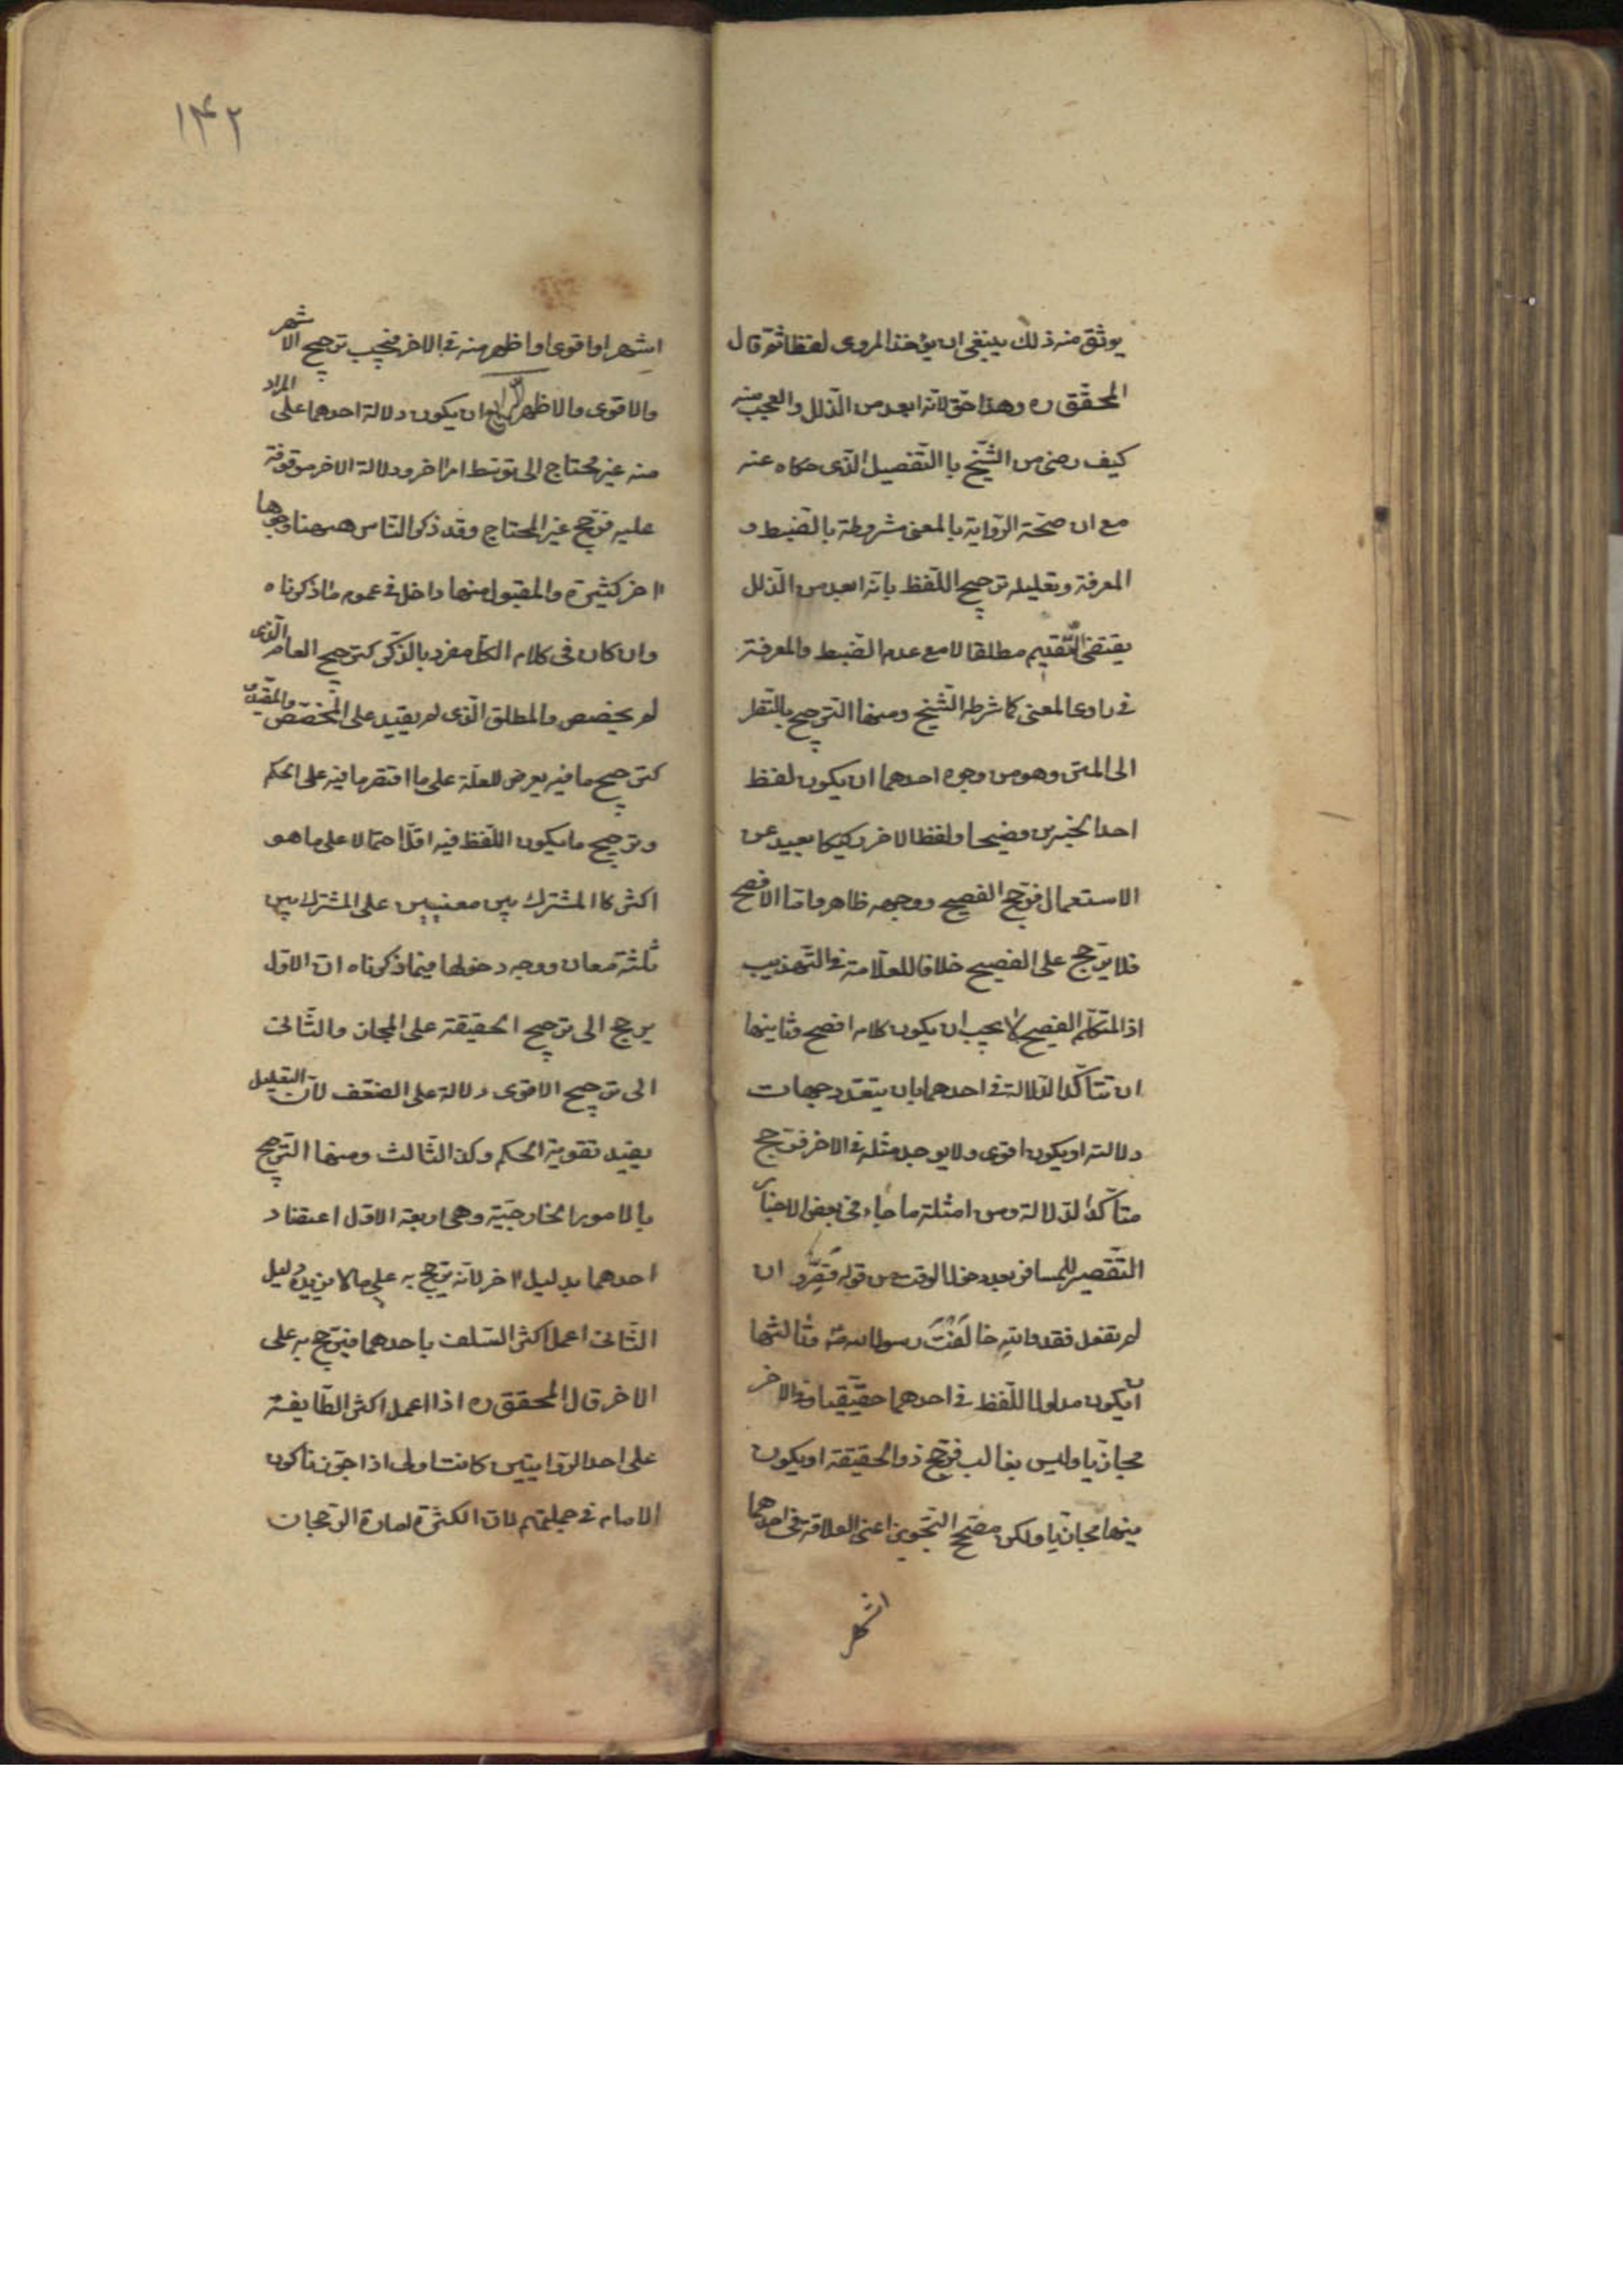 يوثق منه ذلك ينبغى ان يؤخذ المروى لفظا ثم قال
المحقق ره وهذا حق لانه ابعد من الزلل والعجب منه
كيف رضى من الشيخ باالتفصيل الذى حكاه عنه
مع ان صحة الرواية بالمعنى مشروطة بالضبط و
المعرفة وتعليله ترجيح اللفظ بانه ابعد من الزلل
يقتضى التقديم مطلقا لا مع عدم الضبط والمعرفة
فى راوى المعنى كما شرطه الشيخ ومنها الترجيح بالنظر
الى المتن وهو من وجوه احدهما ان يكون لفظ
احد الخبرين فصيحا ولفظ الاخر ركيكا بعيد عن
الاستعمال فيرجح الفصيح ووجهه ظاهر واما الافصح
فلا يرجح على الفصيح خلافا للعلامة فى التهذيب
اذ المتكلم الفصيح لا يجب ان يكون كلامه افصح وثانيها
ان تتأكد الدلالة فى احدهما بان يتعدد جهات
دلالته او يكون اقوى ولا يوجد مثله فى الاخر فيرجح
متأكد الدلالة ومن امثلته ما جاء فى بعض الاخبار
التقصير للمسافر بعد دخول الوقت من قوله قصّر و ان
لم تفعل فقد والله خالَفْتَ رسول الله ص وثالثها
ان يكون مدلول اللفظ فى احدهما حقيقيا وفى الاخر
مجازيا وليس بغالب فيرجح ذو الحقيقة او يكون
فيهما مجازيا ولكن مصحح التجوز اعنى العلاقة فى احدهما
اشهر
١۴٢
اشهر او اقوى او اظهر منه فى الاخر فيجب ترجيح الاشهر
والاقوى والاظهر ان يكون دلالة احدهما على المراد
منه غير محتاج الى توسط امر اخر ودلالة الاخر موقوفة
عليه فيرجح غير المحتاج وقد ذكر الناس ههنا وجوها
اخر كثيرة والمقبول منها داخل فى عموم ما ذكرناه
وان كان فى كلام الكل مفرد بالذكر كترجيح العام الذى
لم يخصص والمطلق الذى لم يقيد على المخصص والمقيد
كترجيح ما فيه يعرض للعلة على ما اقتصر ما فيه على الحكم
وترجيح ما يكون اللفظ فيه اقل احتمالا على ما هو
اكثر كاالمشترك بين معنيين على المشترك بين
ثلثة معان ووجه دخولها فيما ذكرناه ان الاول
يرجح الى ترجيح الحقيقة على المجاز والثانى
الى ترجيح الاقوى دلالة على الضعف لان التعليل
يفيد تقوية الحكم وكذ الثالث ومنها الترجيح
بالامور الخارجية وهى اربعة الاول اعتضاد
احدهما بدليل اخر لانه يرجح به على ما لا يزيده دليل
الثانى اعمل اكثر السلف باحدهما فيرجح به على
الاخر قال المحقق ره اذا اعمل اكثر الطايفة
على احد الروايتين كانت اولى اذا جوزنا كون
الامام فى جملتهم لان الكثرة امارة الرجحان